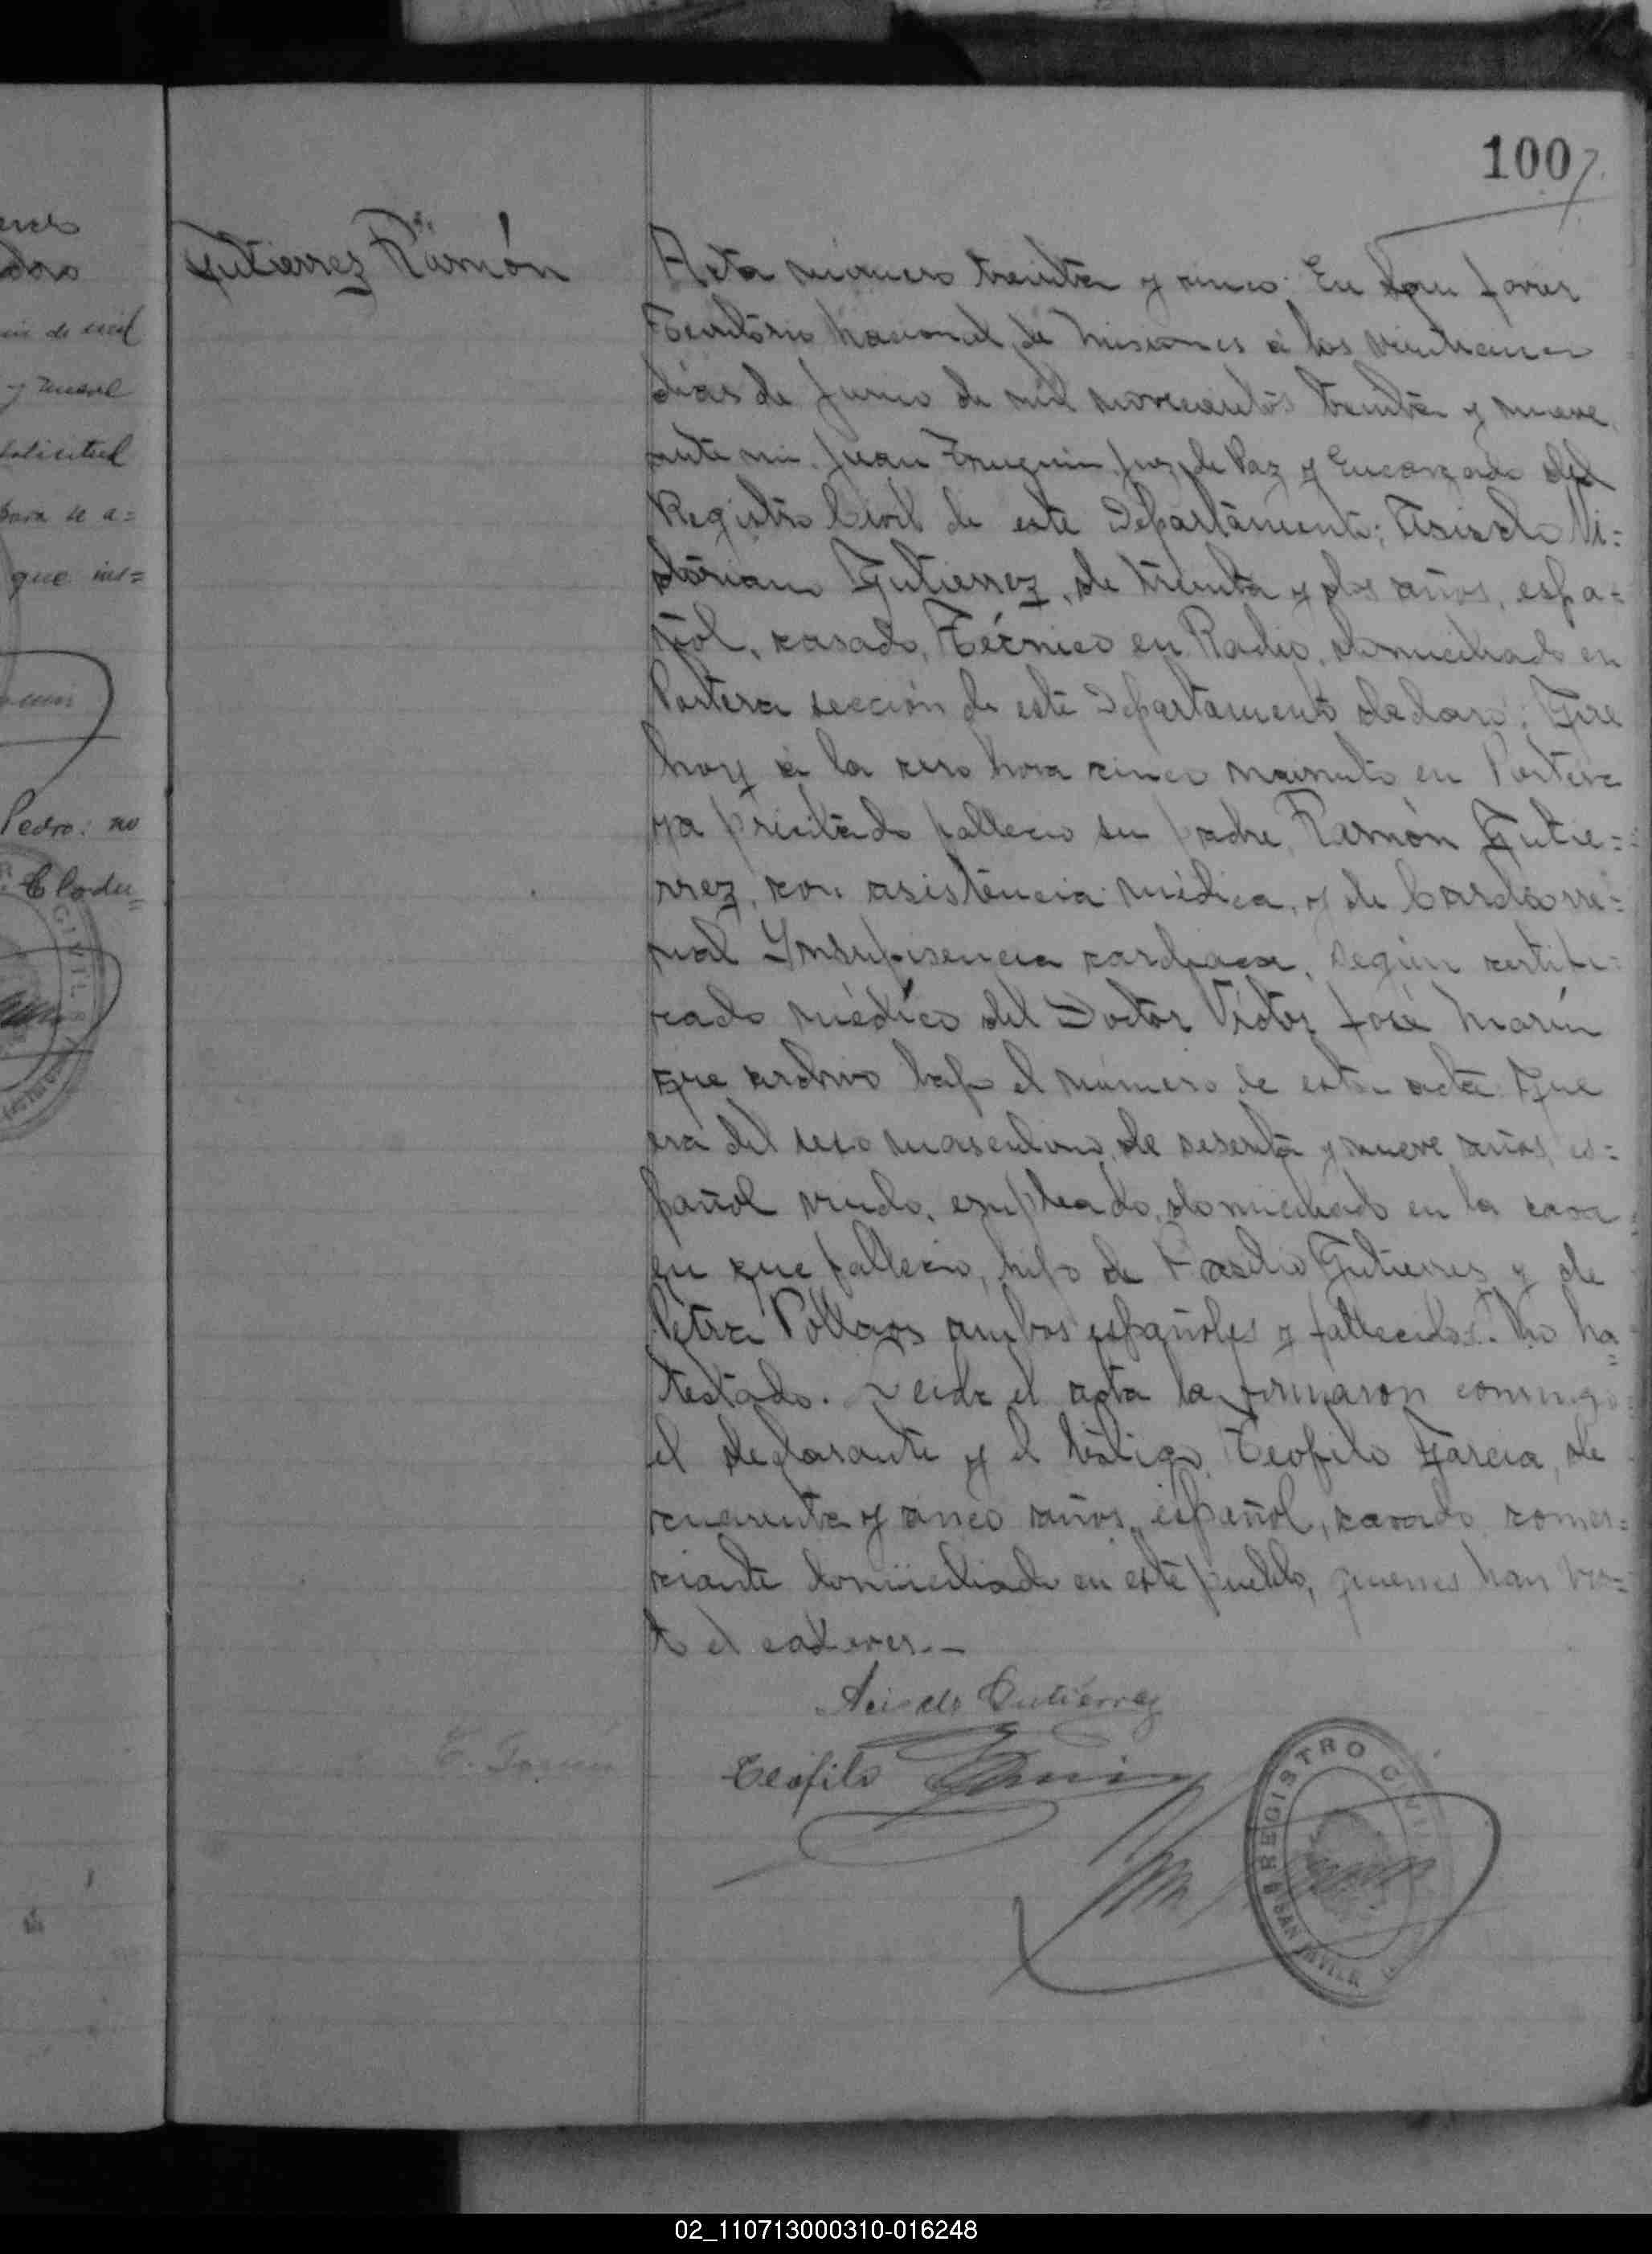 100
Gutierrez Ramón
Acta número treinta y cinco: En San Javier
Territorio Nacional de Misiones á los
días de Junio de mil novecientos treinta y nueve
ante mi Juan Juez de Paz y Encargado del
Registro Civil de este Departamento; Asisclo Vi=
Gutierrez, de treinta y dos años, espa=
ñol, casado, Técnico en Radio, domiciliado en
sección de este Departamento declaró: Que
hoy á la cero hora cinco minuto en
ya precitado fallecio su padre, Ramón Gutie=
rrez, con asistencia médica, y de Cardiorre=
nal Ynsufisencia cardiaca, según certifi=
cado médico del Doctor Víctor José Marín
que archivo bajo el número de esta acta: Que
era del sexo masculino, de sesenta y nueve años, es=
pañol viudo, empleado, domiciliado en la casa
en que fallecio, hijo de Gutierrez y de
Petra ambos españoles y fallecidos. No ha
testado. Leida el acta la firmaron conmigo
el declarante y el testigo Teofilo Garcia, de
cuarenta y cinco años, español, casado, comer=
ciante domiciliado en este pueblo, quienes han vis=
to el cadaver.—
Acisclo Gutiérrez
Teófilo
REGISTRO CIVIL
SAN JAVIER
eral
y
solicitud
para se a=
que
Pedro: no
Clodu=
CIVIL
02_110713000310-016248